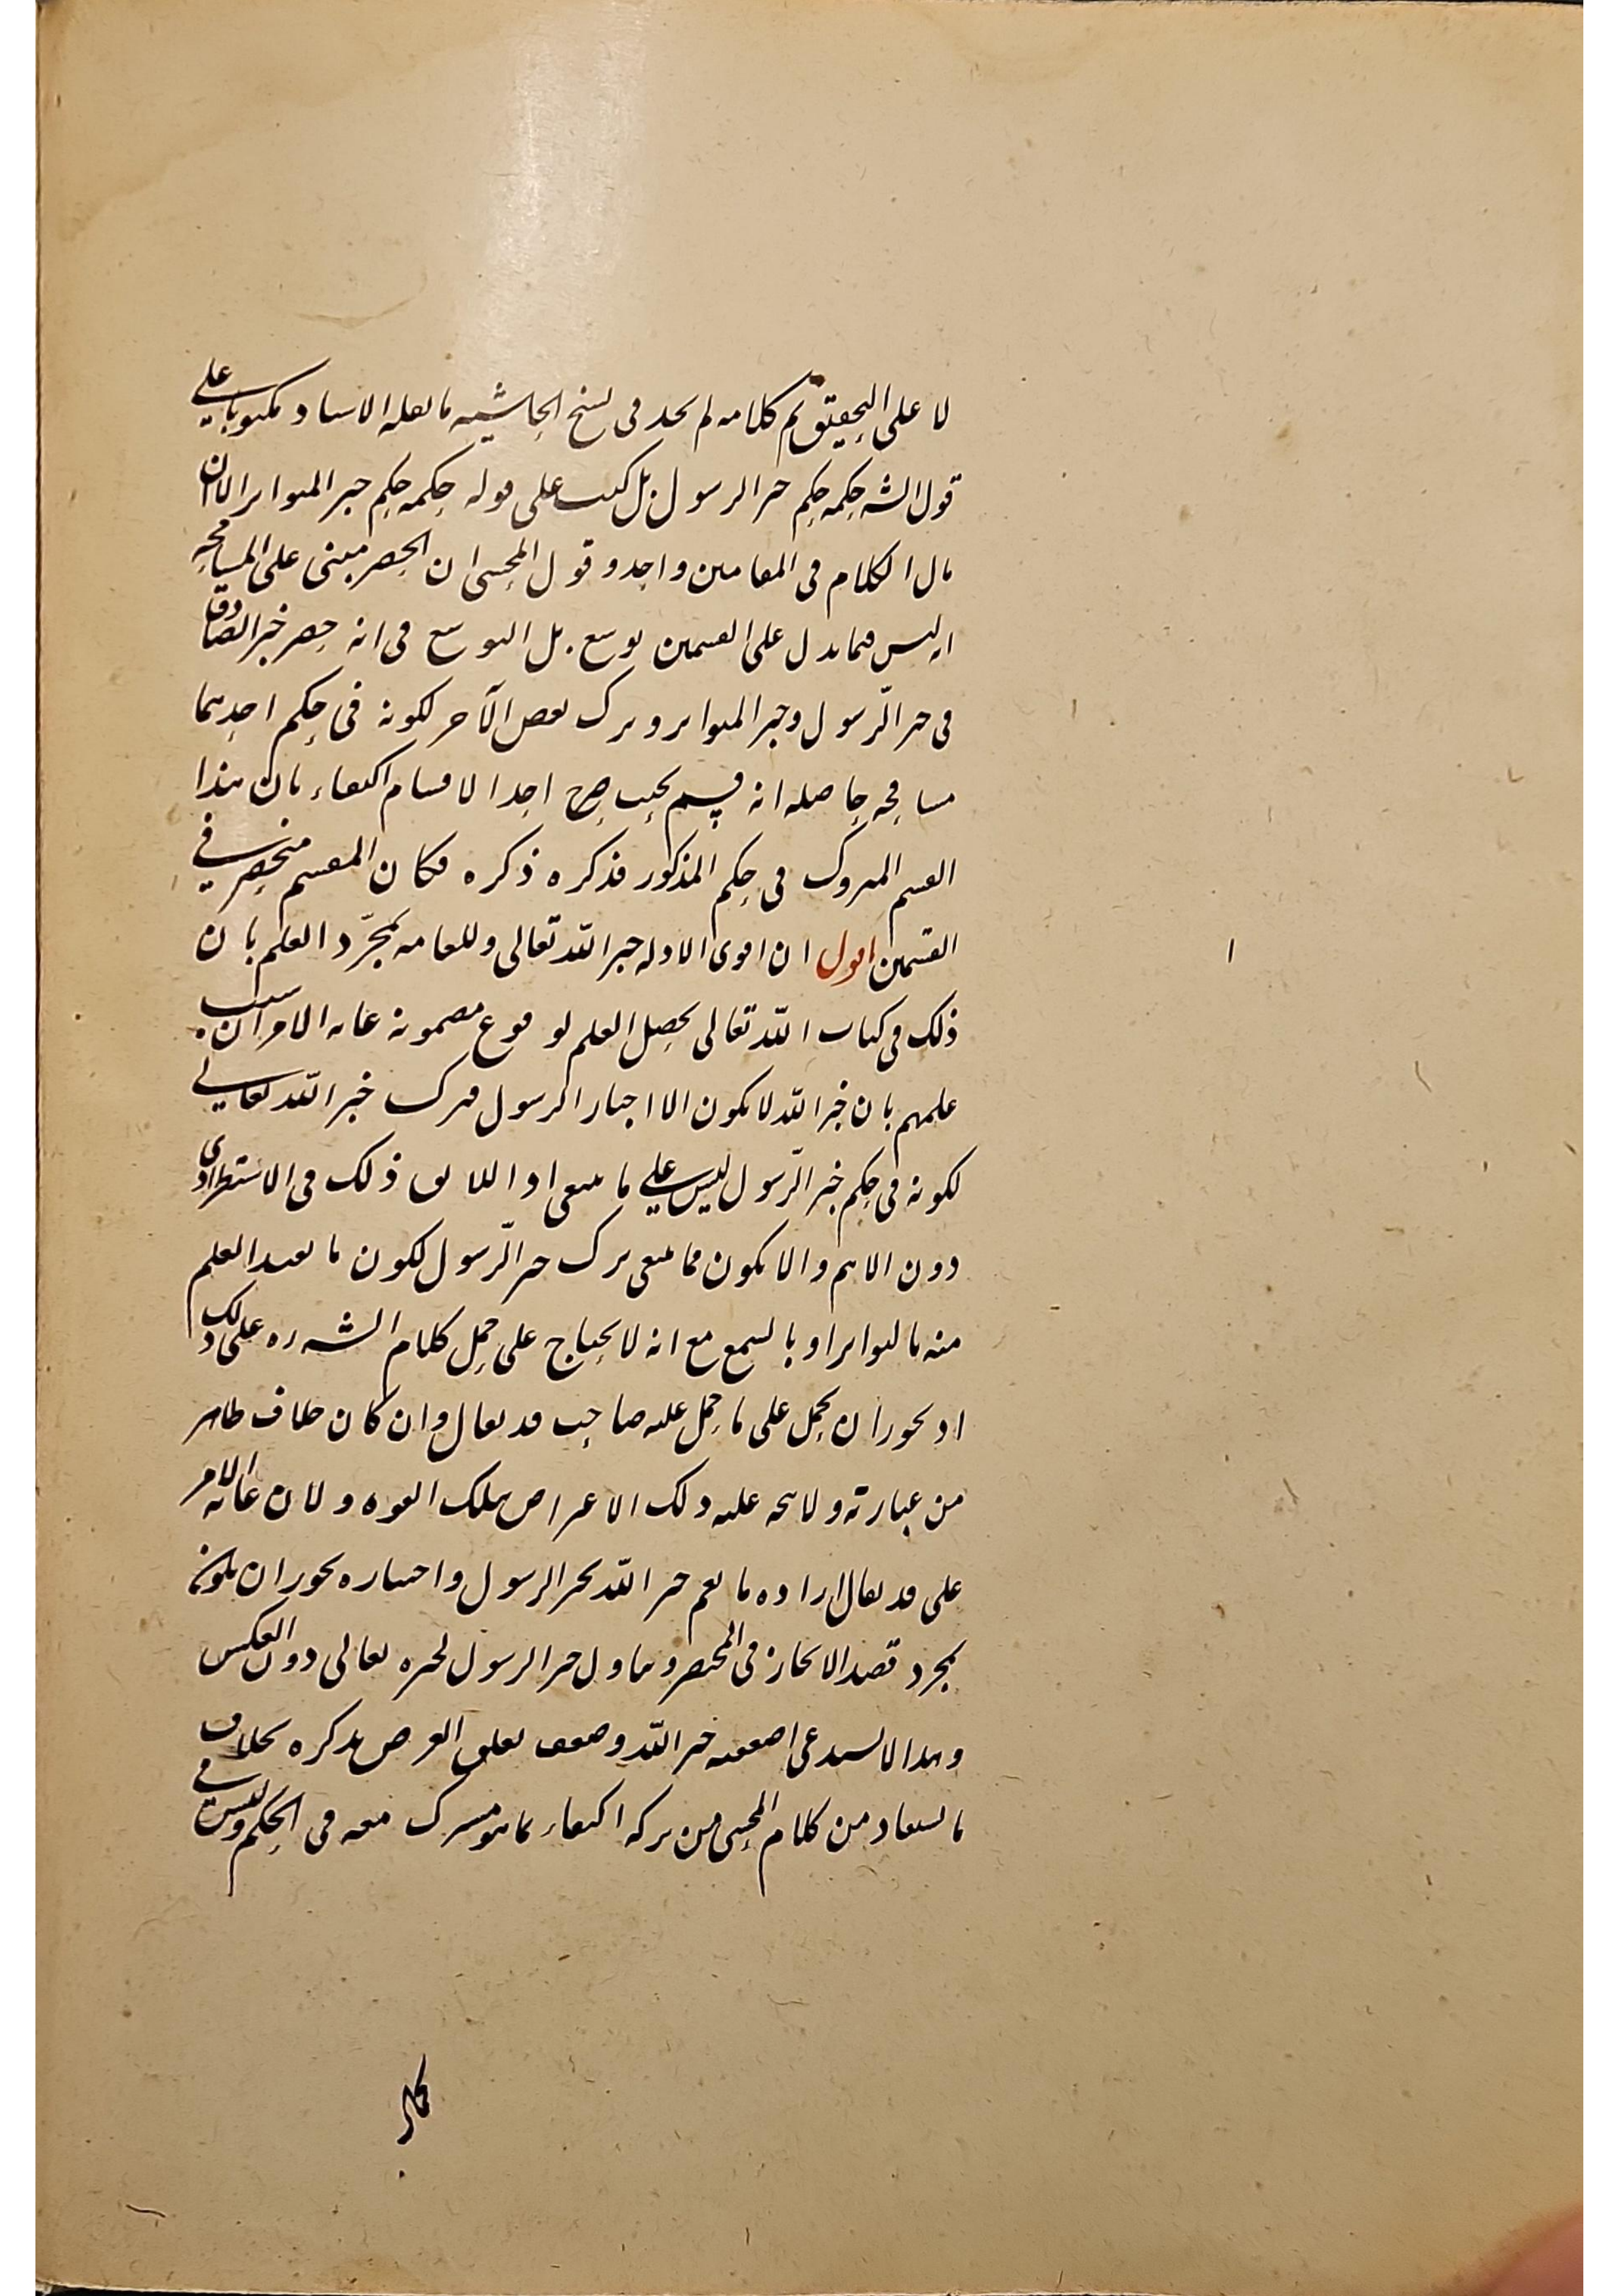 لا على التحقيق تم كلامه لم نجد فى نسخ الحاشيه ما نقله الاستاد مكتوبا على
قول الشه حكمه حكم خبر الرسول بل كتب على قوله حكمه حكم خبر المتواتر الا ان
مال الكلام فى المقامين واحد وقول المحشى ان الحصر مبنى على المسامحه
ليس فيما يدل على القسمين توسع بل التوسع فى انه حصر خبر الصادق
فى خبر الرّسول وخبر المتواتر وترك بعض الآخر لكونه فى حكم احدهما
مسامحه حاصله انه قسم بحيث صح احد الاقسام اكتفاء بان هذا
القسم المتروك فى حكم المذكور فذكره ذكره فكان المقسم منحصر فى
القسمين اقول ان اقوى الادله خبر اللّه تعالى وللعامه بمجرّد العلم بان
ذلك فى كتاب اللّه تعالى يحصل العلم لوقوع مضمونه غايه الامر ان سبب
علمهم بان خبر اللّه لا يكون الا اخبار الرسول فترك خبر اللّه تعالى
لكونه فى حكم خبر الرّسول ليس على ما ينبغى اذ اللائق ذلك فى الاستطرادى
دون الاهم والا يكون مما ينبغى ترك خبر الرّسول لكون ما يفيد العلم
منه بالتواتر او بالسمع مع انه لا يحتاج على حمل كلام الشه ره على ذلك
اذ يجوز ان يحمل على ما حمل عليه صاحب قد يقال وان كان خلاف ظاهر
من عبارته ولا يتجه عليه ذلك الاعتراض بتلك القوه ولان غايه الامر
على قد يقال اراده ما يعم خبر اللّه بخبر الرسول واختياره يجوز ان يكون
بمجرد قصد الايجاز فى المختصر وتناول خبر الرسول لخبره تعالى دون العكس
وهذا لا يستدعى اضعفيه خبر اللّه وضعف تعلق الغرض بذكره بخلاف
ما يستفاد من كلام المحشى من تركه اكتفاء بما هو مشترك معه فى الحكم وليس فى